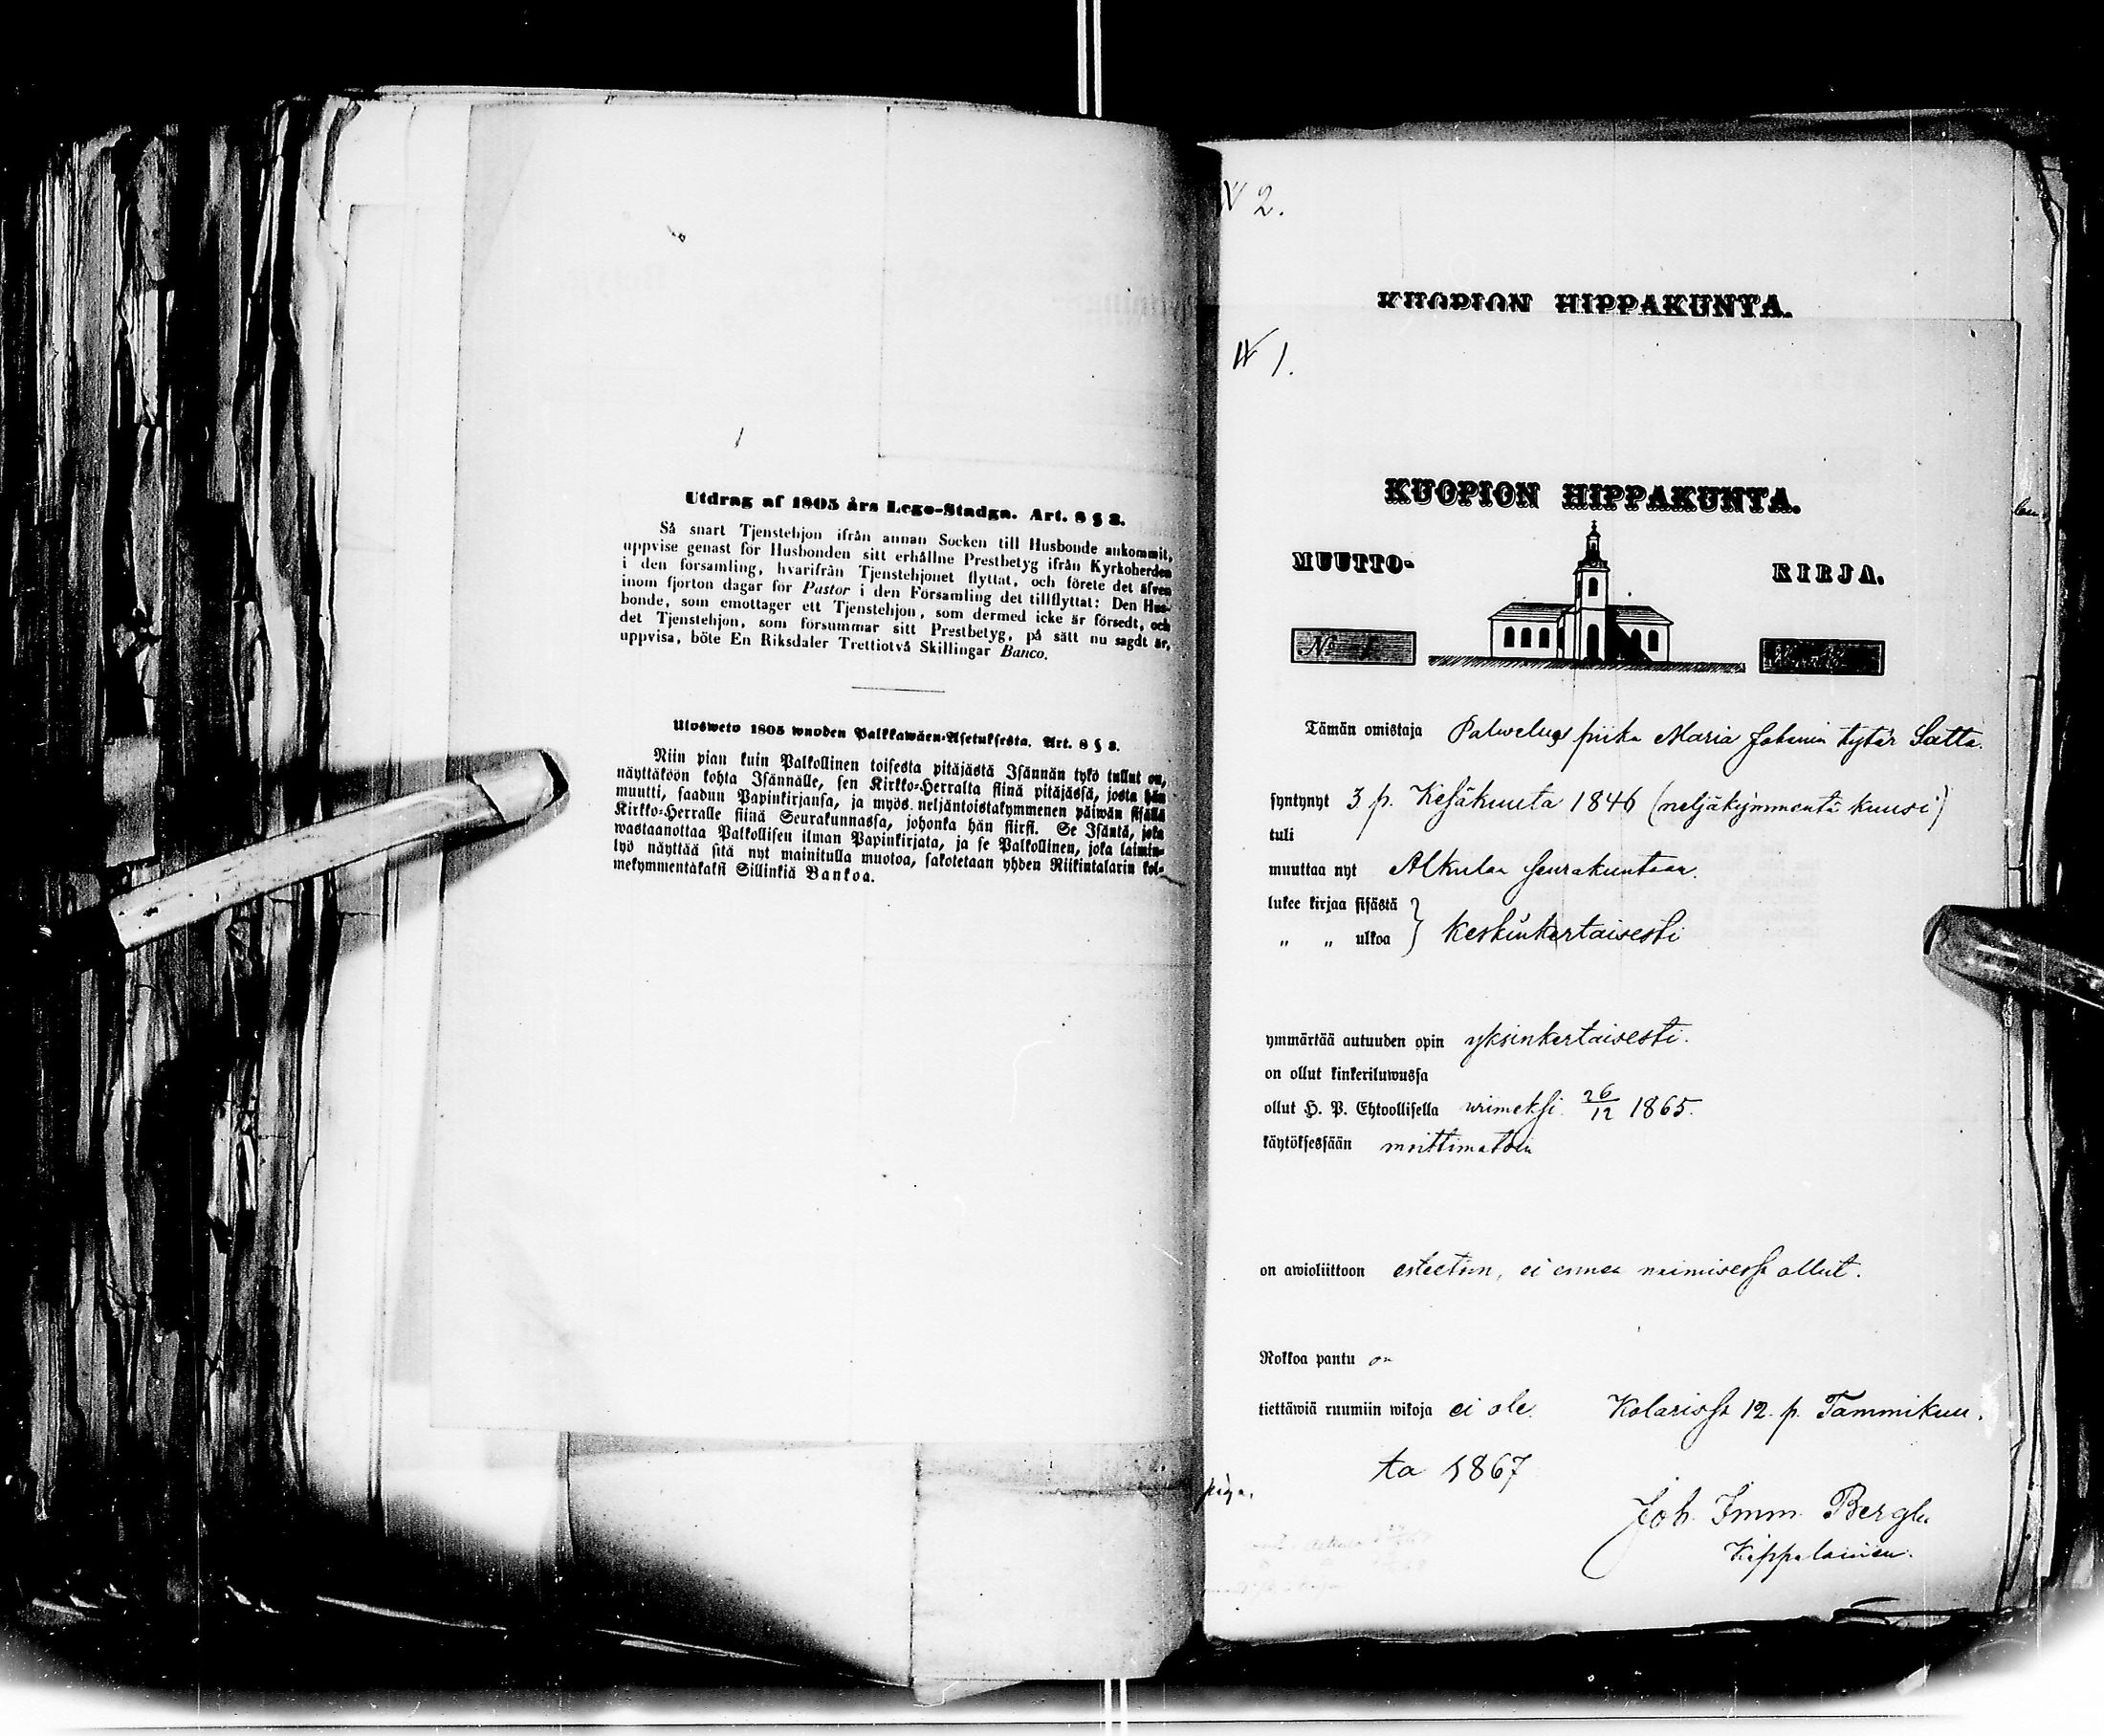 Utdrag af 1805 års Lego-Stadga. Art. 8 § 8.
Så snart Tjenstehjon ifrån annan Socken till Husbonde ankommit,
uppvise genast för Husbonden sitt erhållne Prestbetyg ifrån Kyrkoherden
i den församling, hvarifrån Tjenstehjonet flyttat, och förete det äfven
inom fjorton dagar för Pastor i den Församling det tillflyttat: Den Hus-
bonde, som emottager ett Tjenstehjon, som dermed icke är försedt, och
det Tjenstehjon, som försummar sitt Prestbetyg, på sätt nu sagdt är,
uppvisa, böte En Riksdaler Trettiotvå Skillingar Banco.
Ulosweto 1805 wuoden Palkkawäen-Asetuksesta. Art. 8 § 8.
Niin pian kuin Palkollinen toisesta pitäjästä Isännän tykö tullut on,
näyttäköön kohta Isännälle, sen Kirkko-Herralta siinä pitäjässä, josta hän
muutti, saadun Papinkirjansa, ja myös neljäntoistakymmenen päiwän sisällä
Kirkko-Herralle siinä Seurakunnassa, johonka hän siirsi. Se Isäntä, joka
wastaanottaa Palkollisen ilman Papinkirjata, ja se Palkollinen, joka laimin-
lyö näyttää sitä nyt mainitulla muotoa, sakotetaan yhden Riikintalarin kol-
mekymmentäkaksi Sillinkiä Bankoa.
N 2.
KUOPION HIPPAKUNTA.
N 1.
KUOPION HIPPAKUNTA.
MUUTTO- KIRJA.
No 1
Tämän omistaja Palwelus piika Maria Johanin tytär Satta.
syntynyt 3 p. Kesäkuuta 1846 (neljäkymmentä kuusi)
tuli
muuttaa nyt Alkulan seurakuntaan.
lukee kirjaa sisästä
" " ulkoa } keskinkertaisesti
ymmärtää autuuden opin yksinkertaisesti.
on ollut kinkeriluwussa
ollut H. P. Ehtoollisella wiimeksi 26/12 1865.
käytöksessään moittimatoin
on awioliittoon esteetöin, ei ennen naimisessa ollut.
Rokkoa pantu on
tiettäwiä ruumiin wikoja ei ole. Kolarissa 12. p. Tammikuu.
ta 1867
Joh. Imm. Bergh
Kappalainen.